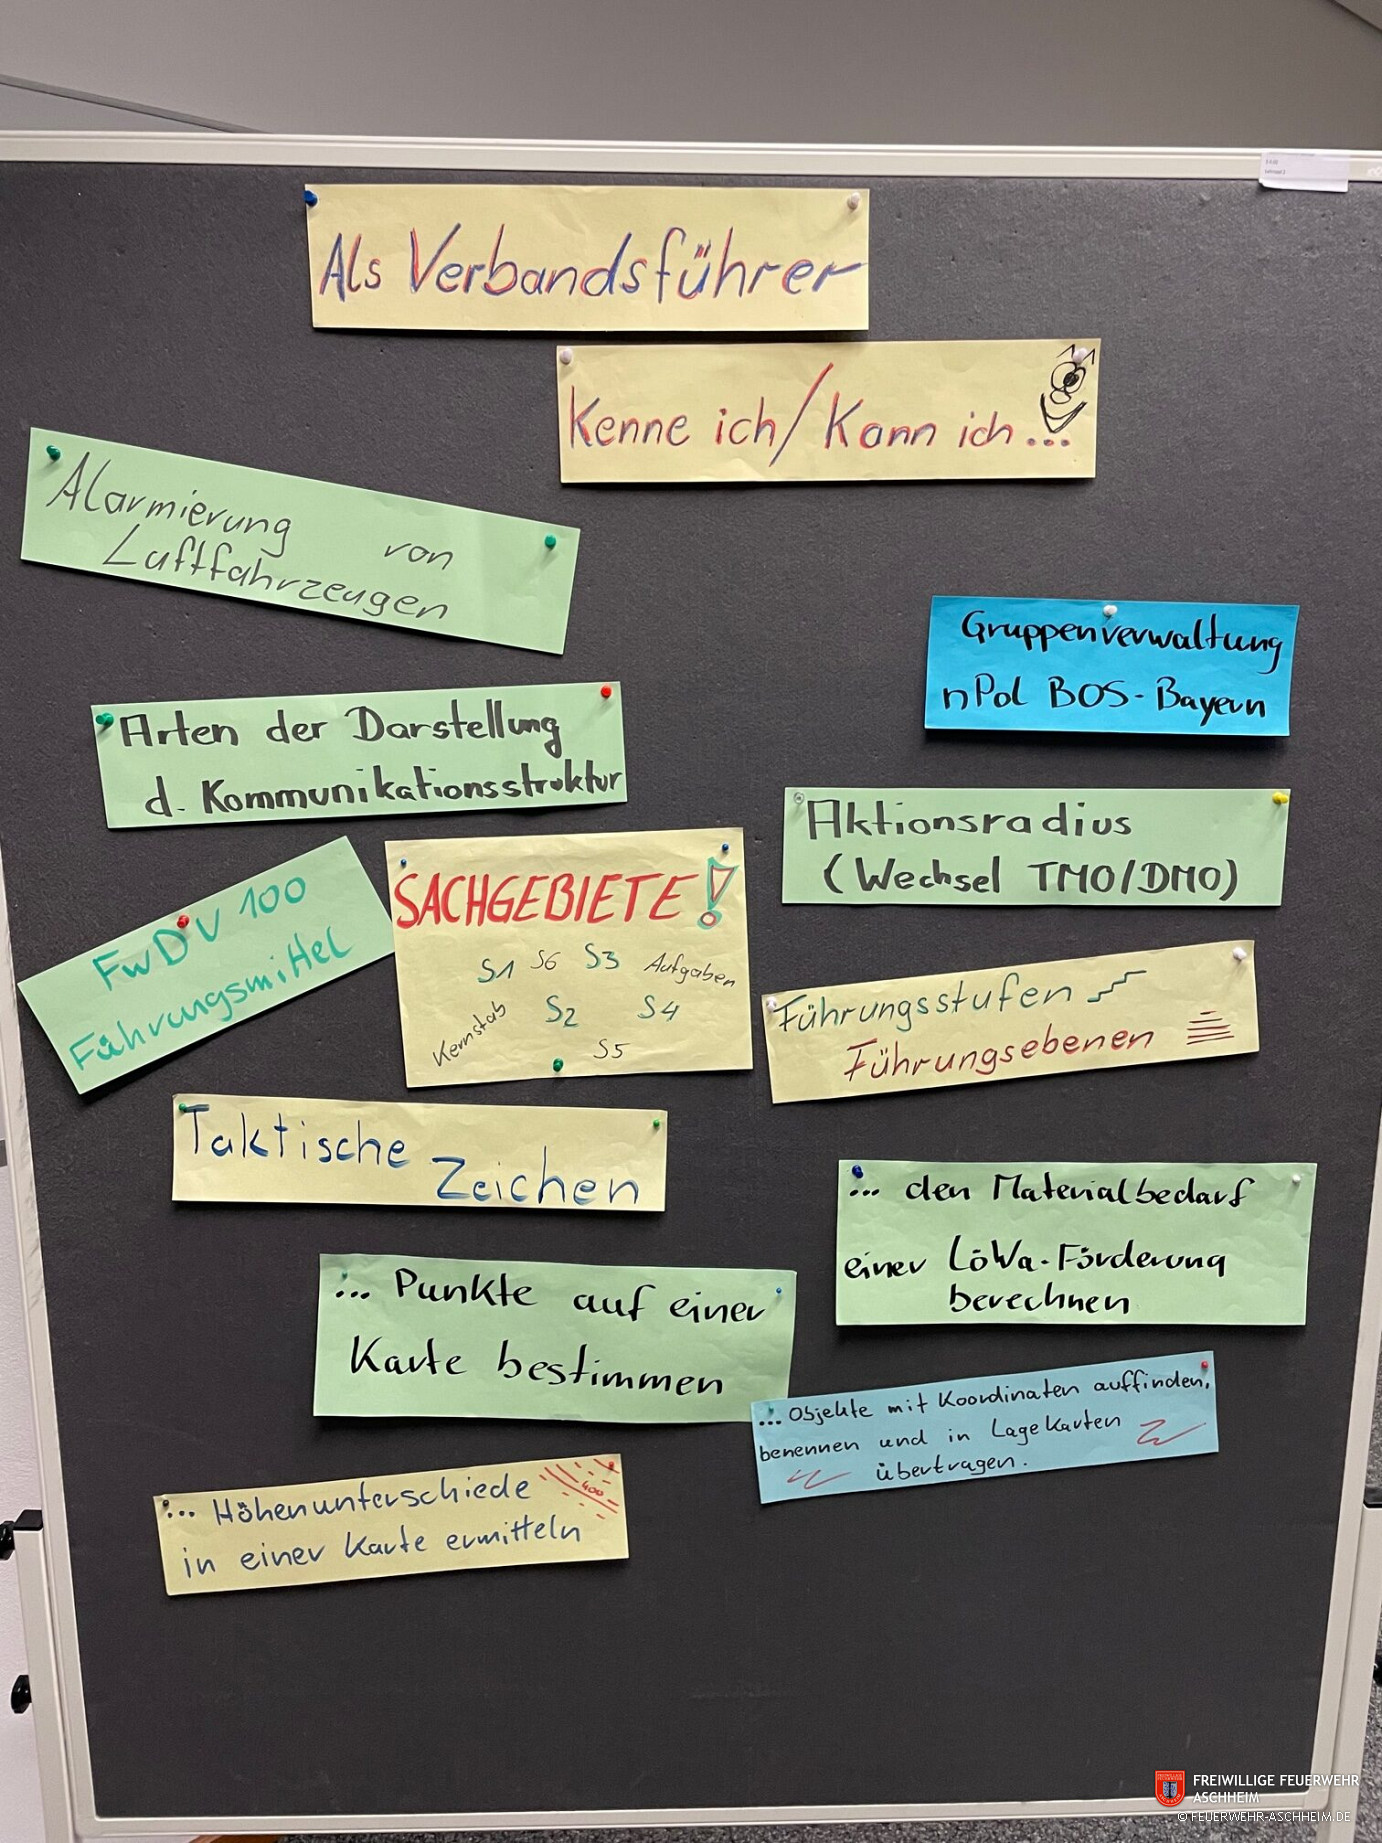 Als Verbandsführer
Kenne ich/Kann ich...
Alarmierung von
Luftfahrzeugen
Gruppenverwaltung
nPol BOS-Bayern
Arten der Darstellung
d. Kommunikationsstruktur
Aktionsradius
(Wechsel TMO/DMO)
FwDV 100
Führungsmittel
SACHGEBIETE!
S1 S6 S3 Aufgaben
Kernstab S2 S4
S5
Führungsstufen
Führungsebenen
Taktische
Zeichen
... den Materialbedarf
einer LöWa-Förderung
berechnen
... Punkte auf einer
Karte bestimmen
... Objekte mit Koordinaten auffinden,
benennen und in Lagekarten
übertragen.
... Höhenunterschiede
in einer Karte ermitteln
400
FREIWILLIGE FEUERWEHR
ASCHHEIM
© FEUERWEHR-ASCHHEIM.DE